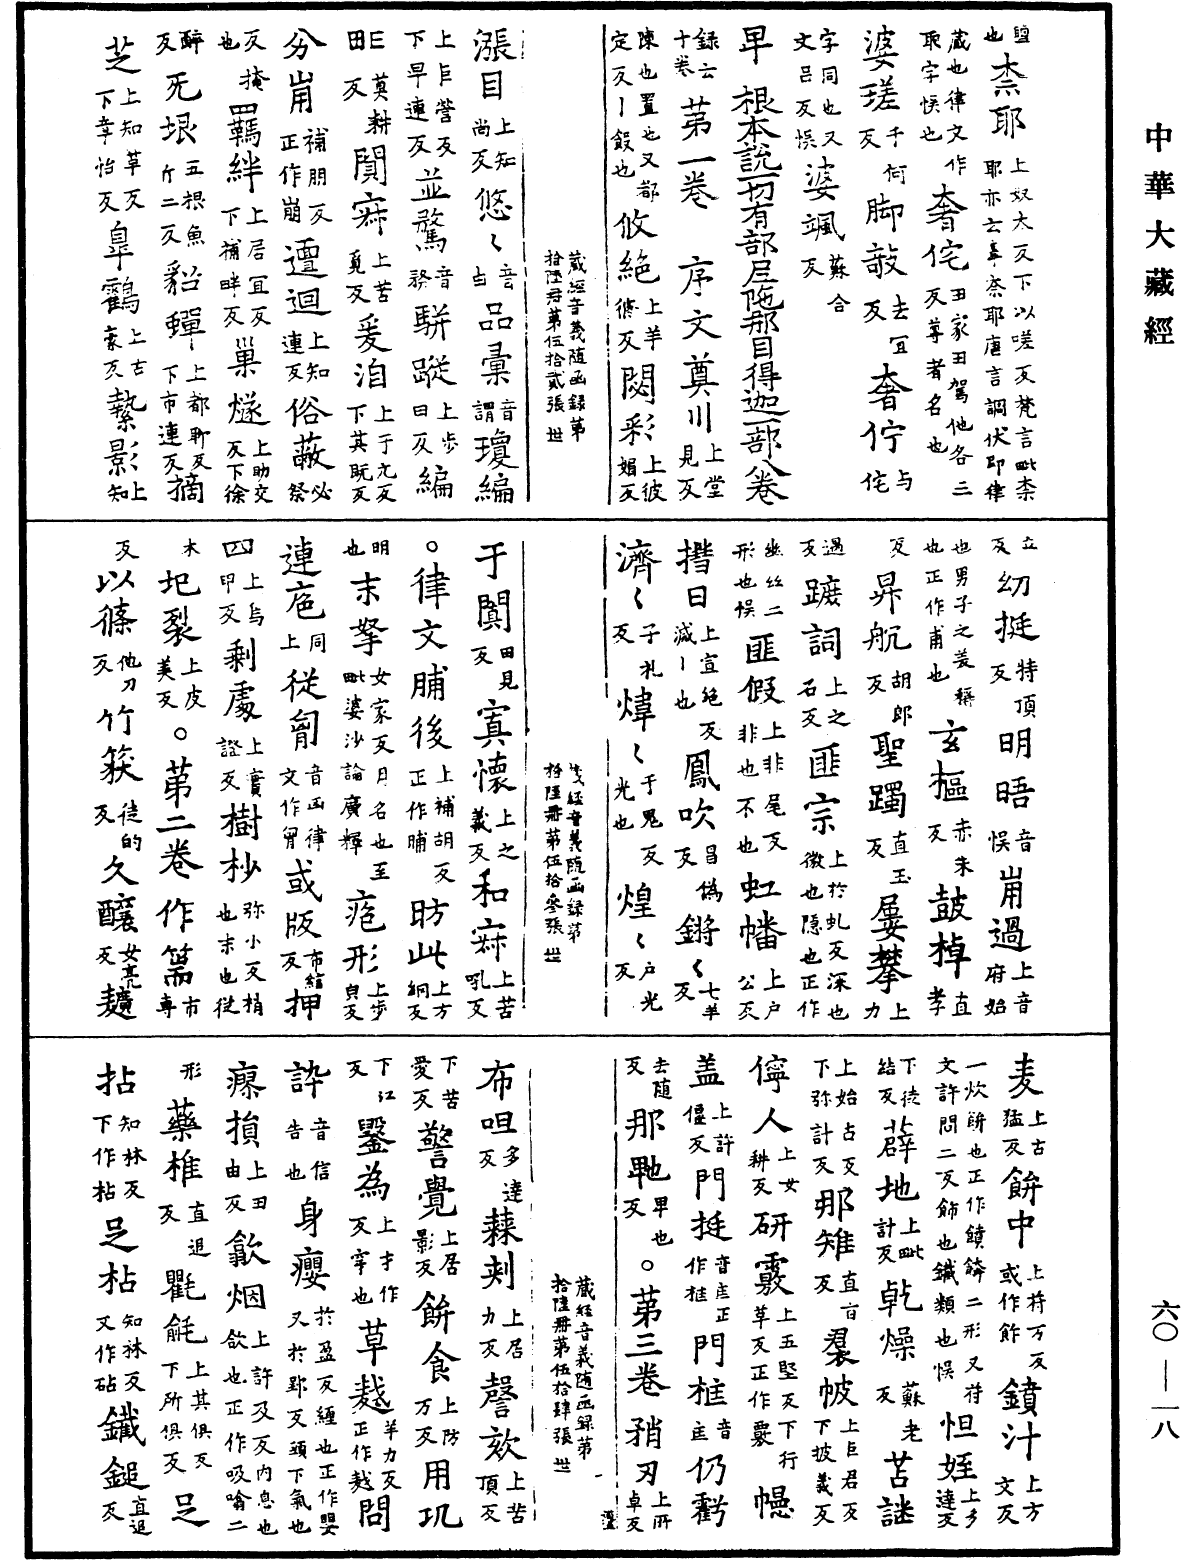 中華大藏經
也柰耶上奴太反下以嗟反梵言毗柰
耶亦云韋柰耶唐言調伏即律
藏也律文作
取字悮也奢侘田家田駕他各二
反尊者名也
婆瑳千何反脚敧去冝反奢佇与侘
字同也又
文吕反悮婆颯蘇合反
早根本說一切有部尼陁那目得迦一部八卷
錄云十卷第一卷序文奠川上堂見反
陳也置也又都
定反丨餟也攸絕上羊修反閟彩上彼媚反
藏經音義随函録第
拾陸册第伍拾貳張世
漲目上知尚反悠〻音由品彙音謂瓊編
上巨營反
下早連反並騖音務駢蹤上步田反編
田莫耕反闃寐上苦覓反爰洎上于元反下其旣反
分崩補朋反正作崩邅迴上知連反俗蔽必祭
反掩也羈絆上居冝反下補畔反巢燧上助交反下徐
醉反旡垠五根魚斤二反貂蟬上都聊反下市連反摘
芝上知革反下章怡反臯鶴上古豪反縶影上知
立反幼挺特頂反明晤音悮崩過上音府始
也男子之美稱
也正作甫也玄樞赤朱反鼓棹直孝
反昇航胡郎反聖躅直玉反屢攀上力
遇反蹠詞上之石反匪宗上於虬反深也微也隱也正作
幽丝二
形也悮匪假上非尾反非也不也虹幡上戶公反
揩日上宣絕反減丨也鳳吹昌偽反鏘〻七羊反
濟〻子礼反煒〻于鬼反光也煌〻戶光反
藏經音義随函録第
拾陸册第伍拾叁張世
于闐田見反寘懷上之義反和寐上苦吼反
。律文脯後上補胡反正作晡昉此上方網反
明也末拏女家反日名也至毗婆沙論廣釋疱形上步皃反
連疱同上從匈音函律文作胷或版布綰反押
四上烏甲反剩處上實證反樹杪弥小反梢也末也從
木圯裂上皮美反。第二卷作篅市專
反以絛他刀反竹篍徒的反久釀女亮反麵
麦上古猛反餅中上符万反或作飰鐼汁上方文反
一炊餅也正作饙餴二形又符
文許問二反飾也鐵類也悮怛姪上多達反
下徒結反薜地上毗計反乾燥蘇老反苫謎
上始占反
下弥計反那雉直旨反羣帔上巨君反下披義反
儜人上女耕反研覈上五堅反下行革反正作覈幰
盖上許偃反門挺音匡正作框門框音匡仍虧
去随反那毑早也反。第三卷矟刃上所卓反
藏經音義随函録第
拾陸册第伍拾肆張世
布呾多達反蕀刺上居力反謦欬上苦頂反
下苦愛反警覺上居影反餅食上防万反用㺬
下江反鑿為上才作反穿也草䟌羊力反正作趒問
誶音信告也身癭於盈反纏也正作嬰又於郢反頭下氣也
瘝損上田由反歙烟上許及反內息也歛也正作吸噏二
形藥椎直追反氍毹上其俱反下所俱反足
拈知林反下作枮足枮知林反又作砧鐵鎚直追反
六〇—一八